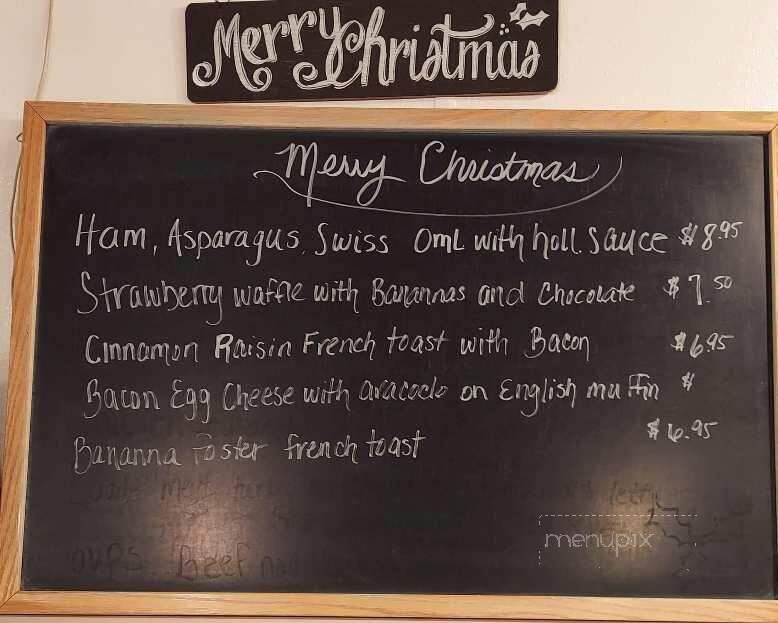 Merry Christmas
Merry Christmas
Ham, Asparagus, Swiss OmL with holl. Sauce $8.95
Strawberry waffle with Banannas and Chocolate $7.50
Cinnamon Raisin French toast with Bacon $6.95
Bacon Egg Cheese with avacodo on English muffin $
Bananna Foster french toast $6.95
Beef
menupix